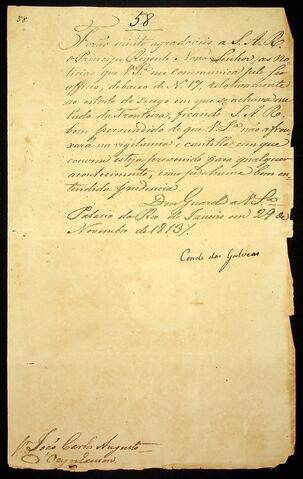 58.
58
Forão muito agradaveis a S. A. R.
o Principe Regente Nosso Senhor, as No-
ticias que V. Sª me communica pelo seo
officio, debaixo de N. 17, relativamente
ao estado de socego em que se achava esse
lado da Fronteira, ficando S. A. R.
bem persuadido de que V. Sª não afrou-
xará na vigilancia e cautella em que
convem esteja prevenido para qualquer
acontecimento, como pede huma bem en-
tendida prudencia.
Deos Guarde a V. Sª
Palacio do Rio de Janeiro em 29 de
Novembro de 1813
Conde das Galveas
João Carlos Augusto
d'Oeynhausen.